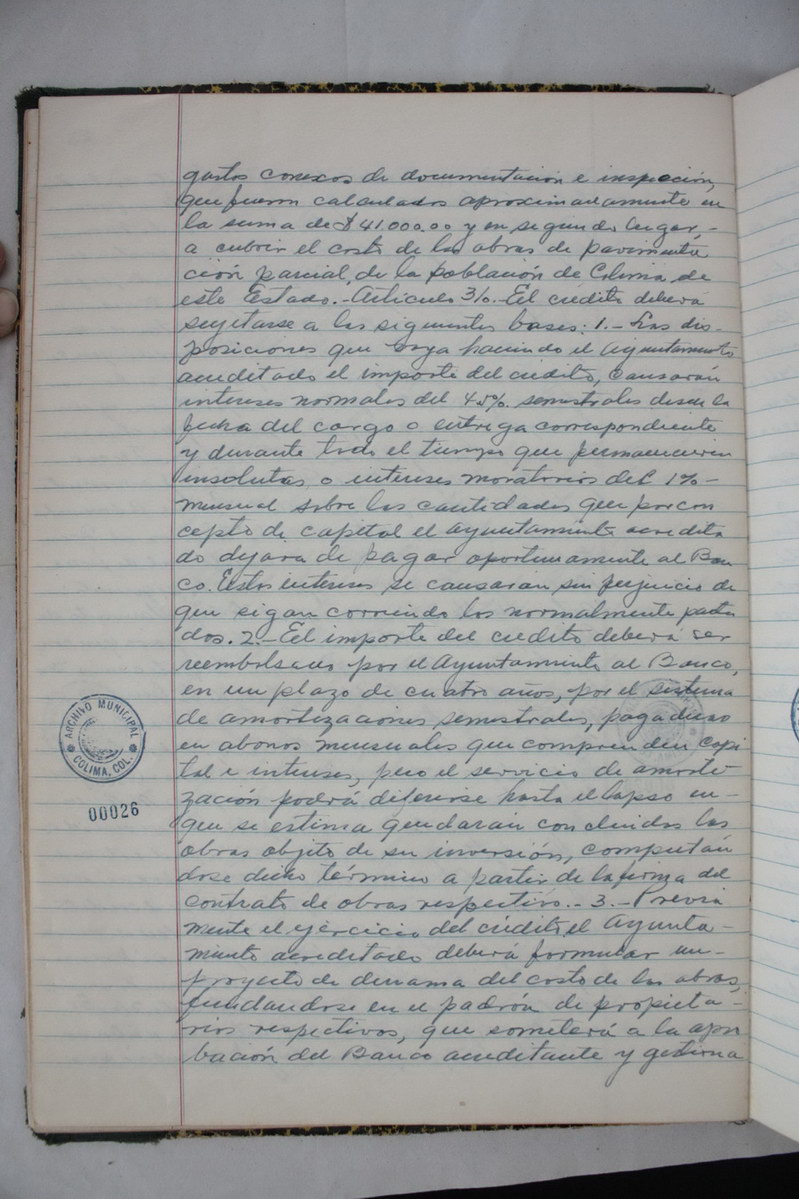 gastos conexos de documentación e inspección,
que fueron calculados aproximadamente en
la suma de $41.000.00 y en segundo lugar,-
a cubrir el costo de las obras de pavimenta
ción parcial, de la población de Colima, de
este Estado.-Artículo 3/o.-El crédito deberá
sujetarse a las siguientes bases: 1.- Las dis-
posiciones que vaya haciendo el Ayuntamiento
acreditado el importe del crédito, causarán
intereses normales del 4.5%. semestrales desde la
fecha del cargo o entrega correspondiente
y durante todo el tiempo que permanecieren
insolutas o intereses moratorios del 1%-
mensual sobre las cantidades que por con
cepto de capital el ayuntamiento acredita
do dejara de pagar oportunamente al Ban
co. Estos intereses se causarán sin perjuicio de
que sigan corriendo los normalmente pacta
dos. 2.- El importe del crédito deberá ser
reembolsado por el Ayuntamiento al Banco,
en un plazo de cuatro años, por el sistema
de amortizaciones semestrales, pagadero
en abonos mensuales que comprenden capi
tal e intereses, pero el servicio de amorti
zación podrá diferirse hasta el lapso en-
que se estima quedarán concluidas las
obras objeto de su inversión, compután
dose dicho término a partir de la firma del
contrato de obras respectivo.- 3.- Previa
mente el ejercicio del crédito el Ayunta-
miento acreditado deberá formular un-
proyecto de derrama del costo de las obras,
fundándose en el padrón de propieta-
rios respectivos, que someterá a la apro
bación del Banco acreditante y gestiona
ARCHIVO MUNICIPAL
COLIMA, COL.
00026